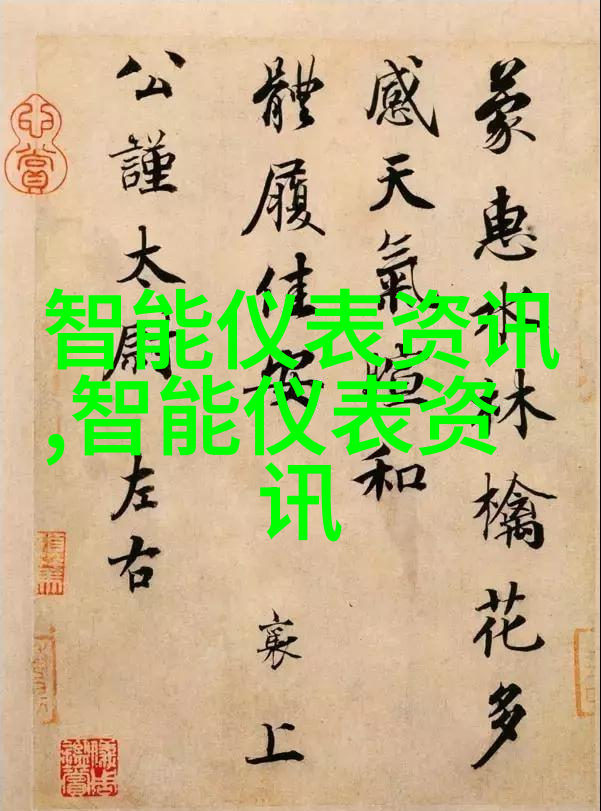 蒙惠水林檎花多
感天氣暄和
體履佳安
襄上
公謹太尉左右
智能仪表资讯
,智能仪表资
讯